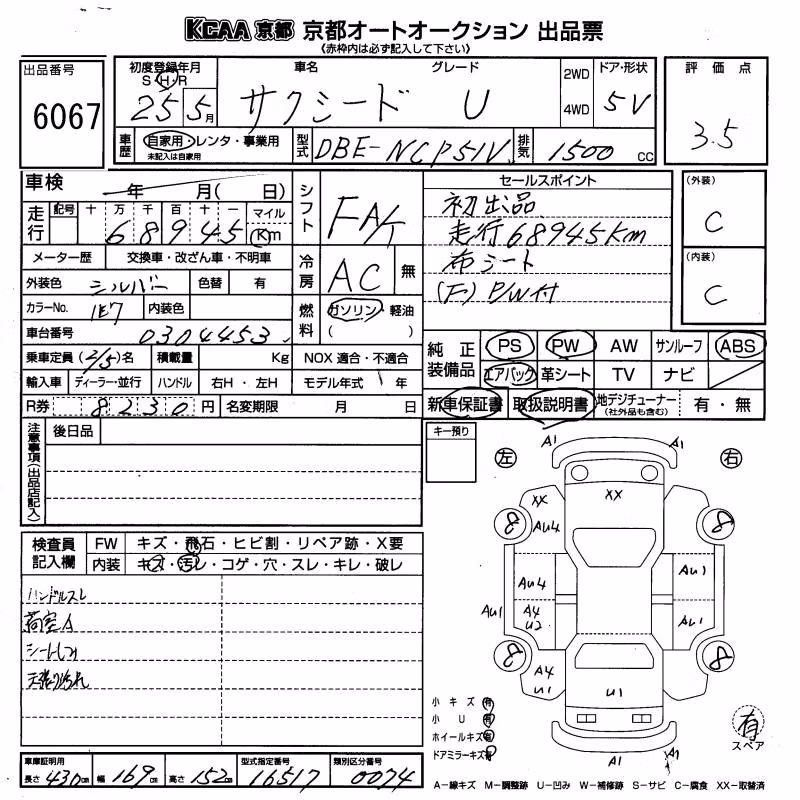 KCAA 京都 京都オートオークション 出品票
《赤枠内は必ず記入して下さい》
出品番号
6067
初度登録年月
S・H・R
25 5月
車名 グレード
サクシード U
2WD
4WD
ドア・形状
5V
評価点
3.5
車歴
自家用・レンタ・事業用
未記入は自家用
型式
DBE-NCP51V
排気
1500 cc
車検 年 月( 日)
走行
記号 十 万 千 百 十 一 マイル
6 8 9 4 5 Km
メーター歴 交換車・改ざん車・不明車
外装色 シルバー 色替 有
カラーNo. 1E7 内装色
車台番号 0304453
乗車定員 (2/5)名 積載量 Kg NOX 適合・不適合
輸入車 ディーラー・並行 ハンドル 右H・左H モデル年式 年
R券 8230円 名変期限 月 日
シフト
FA/T
冷房
AC 無
燃料
ガソリン・軽油
( )
セールスポイント
初出品
走行68945Km
布シート
(F) P/W付
(外装)
C
(内装)
C
純正装備品
PS PW AW サンルーフ ABS
エアバック 革シート TV ナビ
新車保証書 取扱説明書 地デジチューナー 有・無
(社外品も含む)
注意事項(出品店記入)
後日品
キー預り
検査員記入欄
FW キズ・飛石・ヒビ割・リペア跡・X要
内装 キズ・汚レ・コゲ・穴・スレ・キレ・破レ
ハンドルスレ
荷室A
シートしみ
天張り汚れ
左 右
A1 A1
XX XX
8 8
AU4
AU4 AU1
AU1 A4 U2 AU1
8 8
A4 U1 U1
A1 A1
小キズ 有
小U 有
ホイールキズ 有
ドアミラーキズ
有
スペア
車庫証明用
長さ 430cm 幅 169cm 高さ 152cm
型式指定番号 16517
類別区分番号 0074
A－線キズ M－調整跡 U－凹み W－補修跡 S－サビ C－腐食 XX－取替済